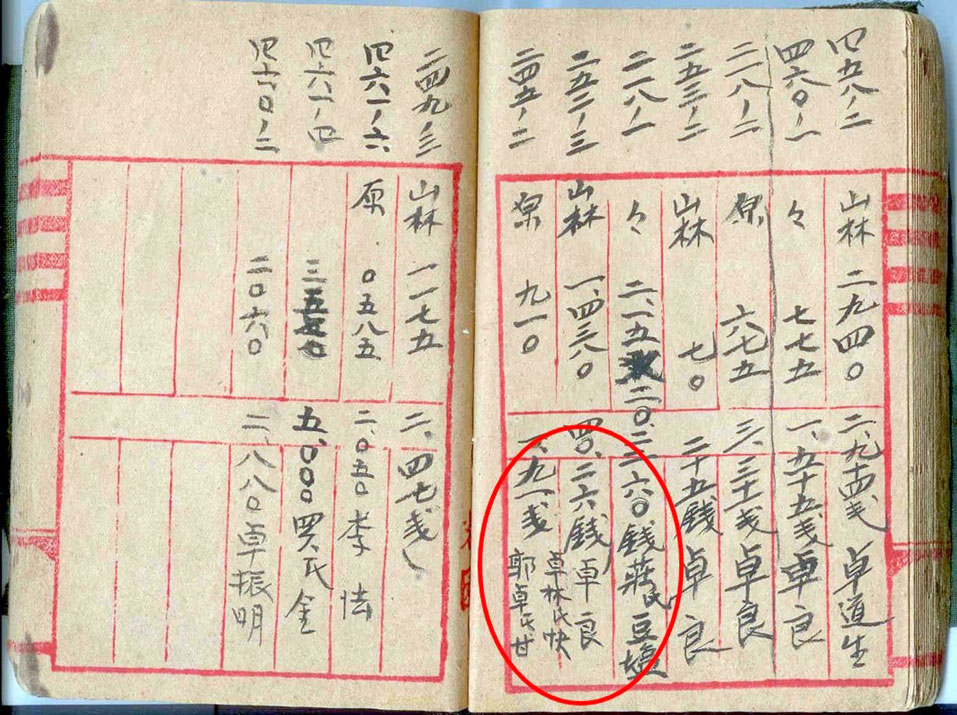 四五八ノ二 山林 二九四〇 二、九十四戋 卓道生
四六〇ノ一 々 七七五 一、五十五戋 卓良
二一八ノ二 原 六七五 三、三十一戋 卓良
二五三ノ二 山林 七〇 二十五銭 卓良
二一八ノ一 々 二、一五 二〇、二六〇銭 蔣氏豆塩
二五二ノ三 山林 一、四三八〇 四〇、二六銭 卓良
卓林氏快
二四五ノ二 原 九一〇 一、九一戋 郭卓氏甘
二四九ノ三 山林 一一七五 二、四七戋
四六一ノ六 原 〇五八五 二、〇五〇 李怯
四六一ノ四 三 五、〇〇〇 買氏金
四六〇ノ二 二〇六〇 二、八八〇 卓振明